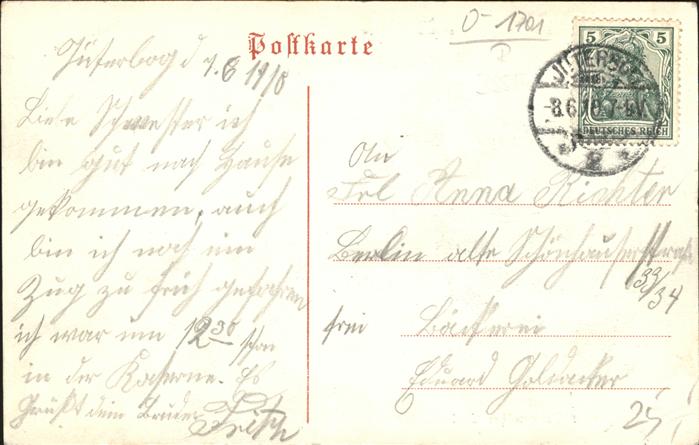 O-1701
Postkarte
5 5
DEUTSCHES REICH
JÜTERBOG
-8.6.10.7-8V.
Jüterbog d 7.6 19/8
Liebe Schwester ich
bin gut nach Hause
gekommen, auch
bin ich noch um
Zug zu früh gefahren
ich war um 12 30 schon
in der Kaserne. Es
Grüßt dein Bruder
Fritz
An
Frl Anna Richter
Berlin alte Schönhauserstraße
33/34
frei Bäckerei
Eduard
25